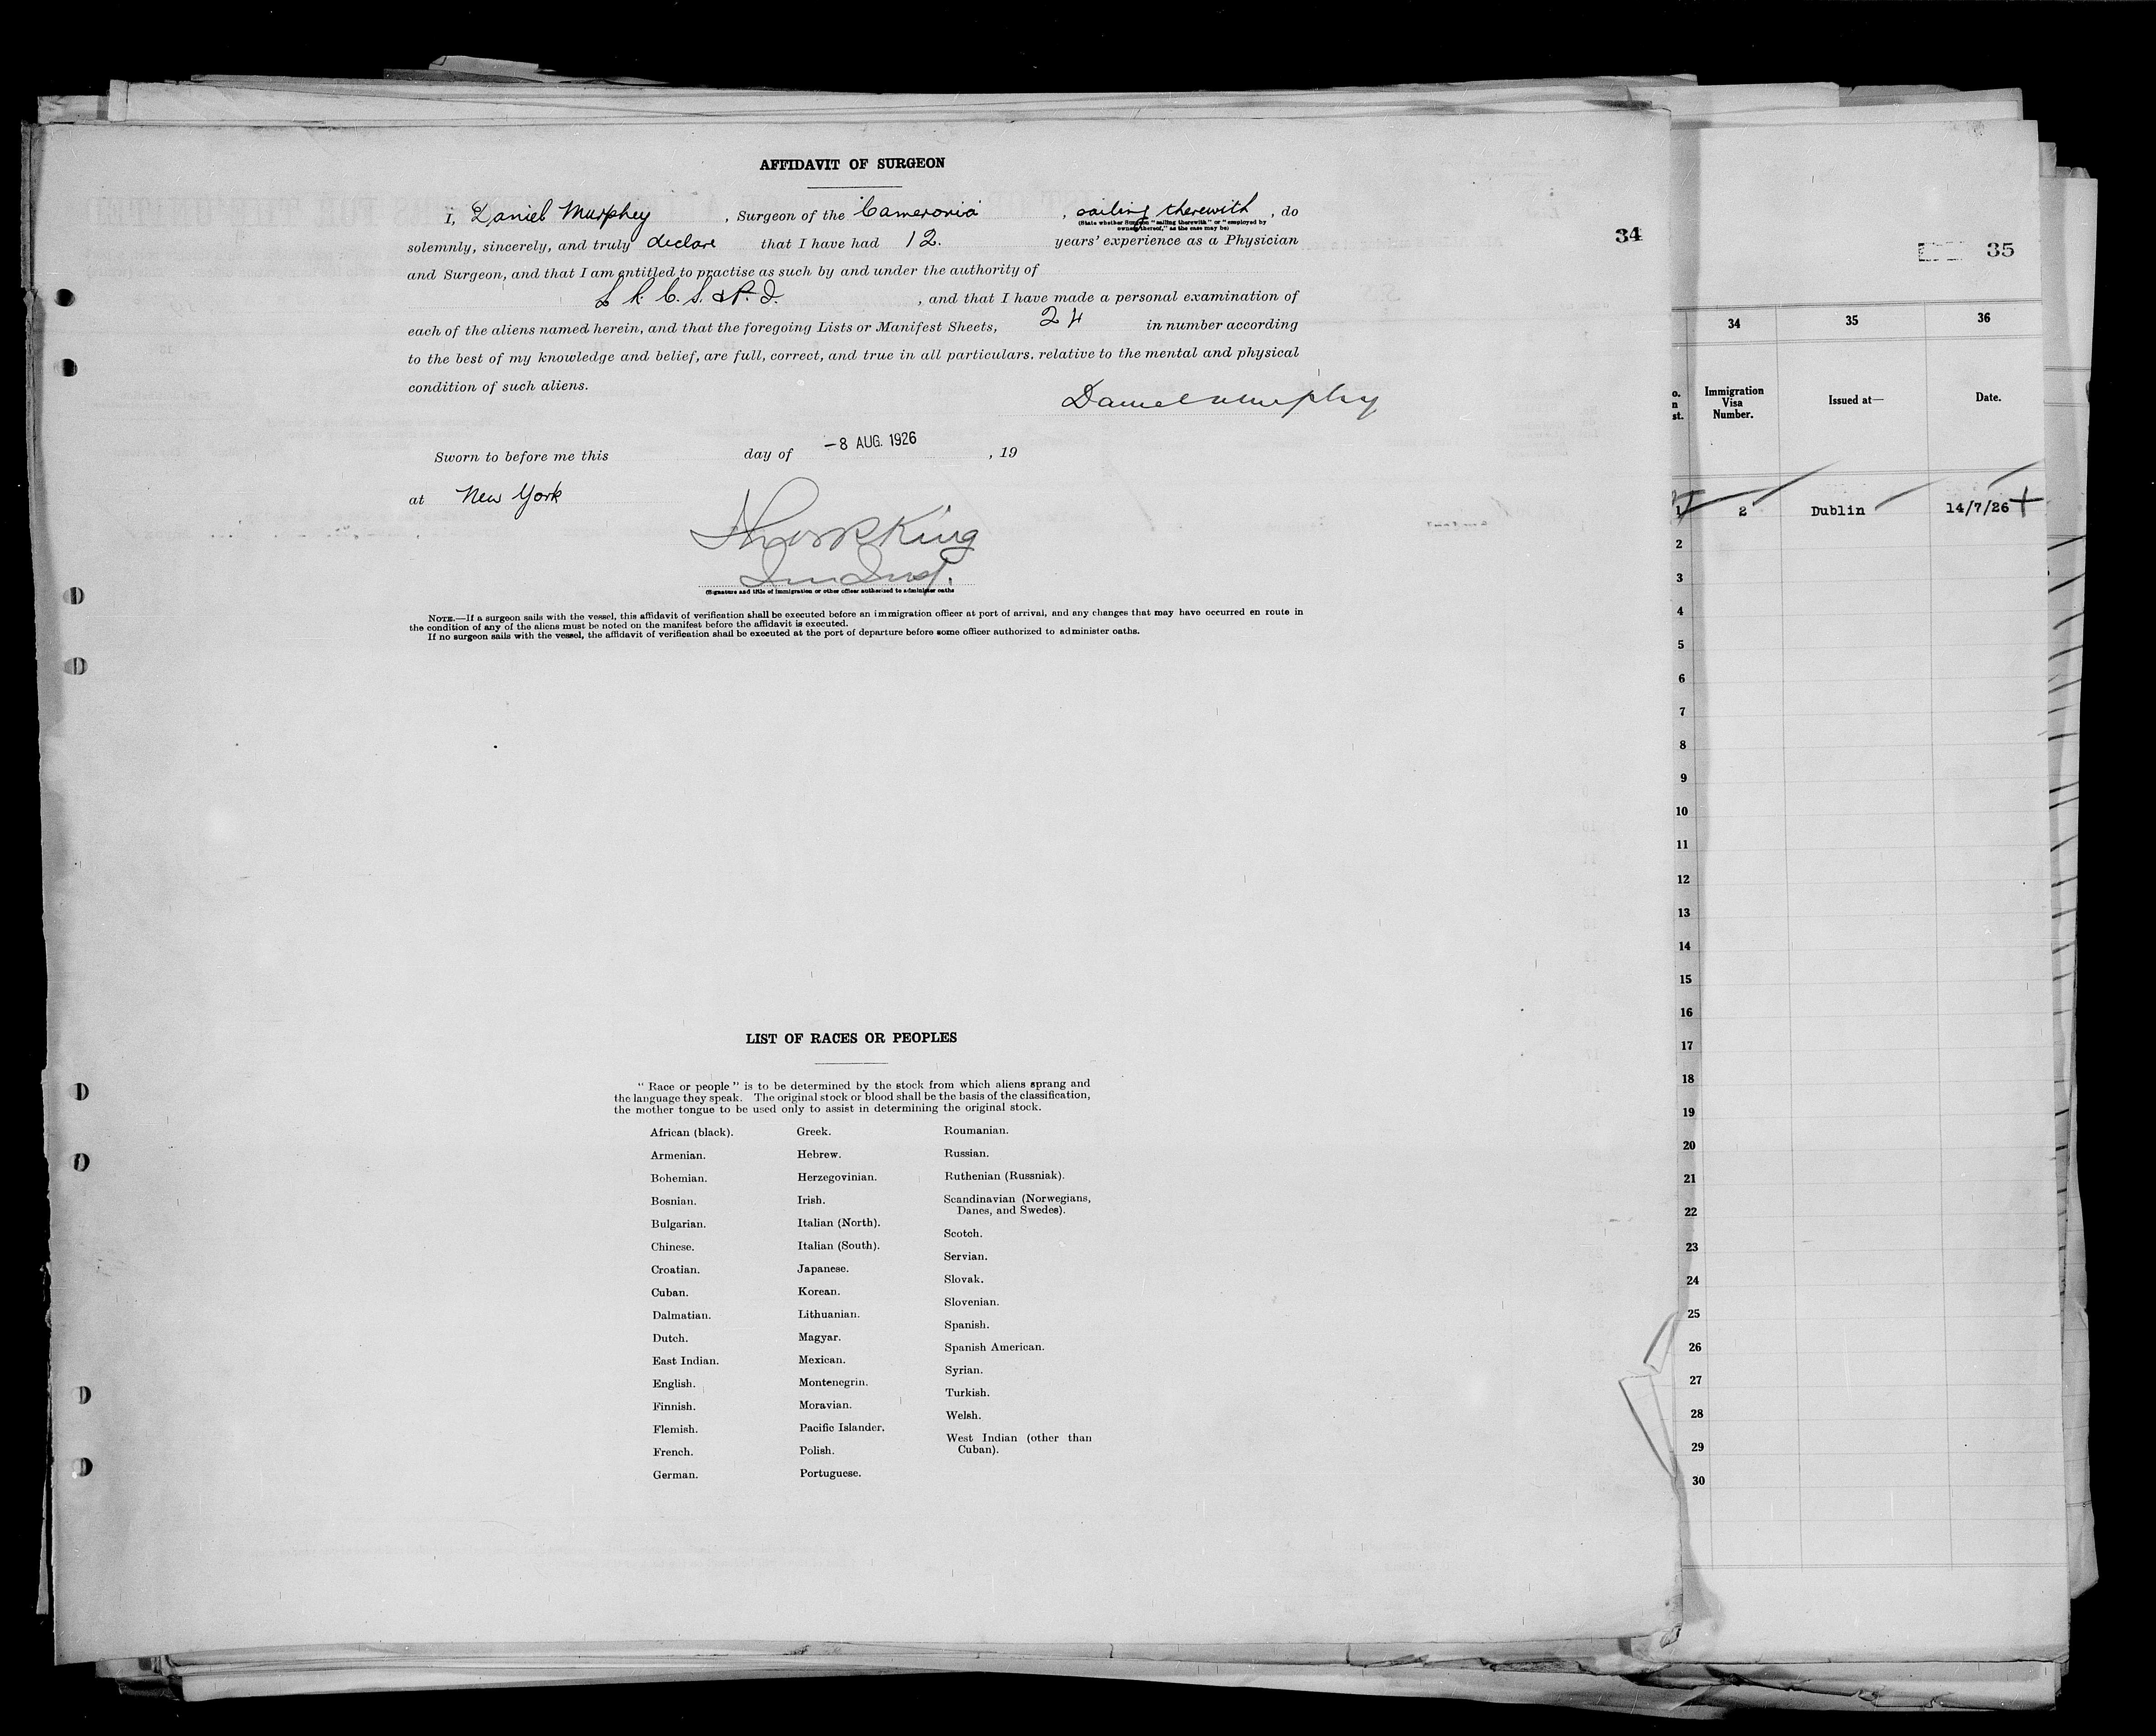 AFFIDAVIT OF SURGEON
I, Daniel Murphey , Surgeon of the Cameronia , sailing therewith , do
(State whether Surgeon "sailing therewith" or "employed by
owners thereof," as the case may be)
solemnly, sincerely, and truly declare that I have had 12. years' experience as a Physician
and Surgeon, and that I am entitled to practise as such by and under the authority of
L R. C. S. & P. I. , and that I have made a personal examination of
each of the aliens named herein, and that the foregoing Lists or Manifest Sheets, 24 in number according
to the best of my knowledge and belief, are full, correct, and true in all particulars, relative to the mental and physical
condition of such aliens.
Daniel Murphy
Sworn to before me this day of -8 AUG. 1926 , 19
at New York
King
(Signature and title of immigration or other officer authorized to administer oaths
NOTE.—If a surgeon sails with the vessel, this affidavit of verification shall be executed before an immigration officer at port of arrival, and any changes that may have occurred en route in
the condition of any of the aliens must be noted on the manifest before the affidavit is executed.
If no surgeon sails with the vessel, the affidavit of verification shall be executed at the port of departure before some officer authorized to administer oaths.
LIST OF RACES OR PEOPLES
"Race or people" is to be determined by the stock from which aliens sprang and
the language they speak. The original stock or blood shall be the basis of the classification,
the mother tongue to be used only to assist in determining the original stock.
African (black).
Armenian.
Bohemian.
Bosnian.
Bulgarian.
Chinese.
Croatian.
Cuban.
Dalmatian.
Dutch.
East Indian.
English.
Finnish.
Flemish.
French.
German.
Greek.
Hebrew.
Herzegovinian.
Irish.
Italian (North).
Italian (South).
Japanese.
Korean.
Lithuanian.
Magyar.
Mexican.
Montenegrin.
Moravian.
Pacific Islander.
Polish.
Portuguese.
Roumanian.
Russian.
Ruthenian (Russniak).
Scandinavian (Norwegians,
Danes, and Swedes).
Scotch.
Servian.
Slovak.
Slovenian.
Spanish.
Spanish American.
Syrian.
Turkish.
Welsh.
West Indian (other than
Cuban).
34
35
34 35 36
o.
n
st.
Immigration
Visa
Number.
Issued at—
Date.
1 2 Dublin 14/7/26
2
3
4
5
6
7
8
9
10
11
12
13
14
15
16
17
18
19
20
21
22
23
24
25
26
27
28
29
30